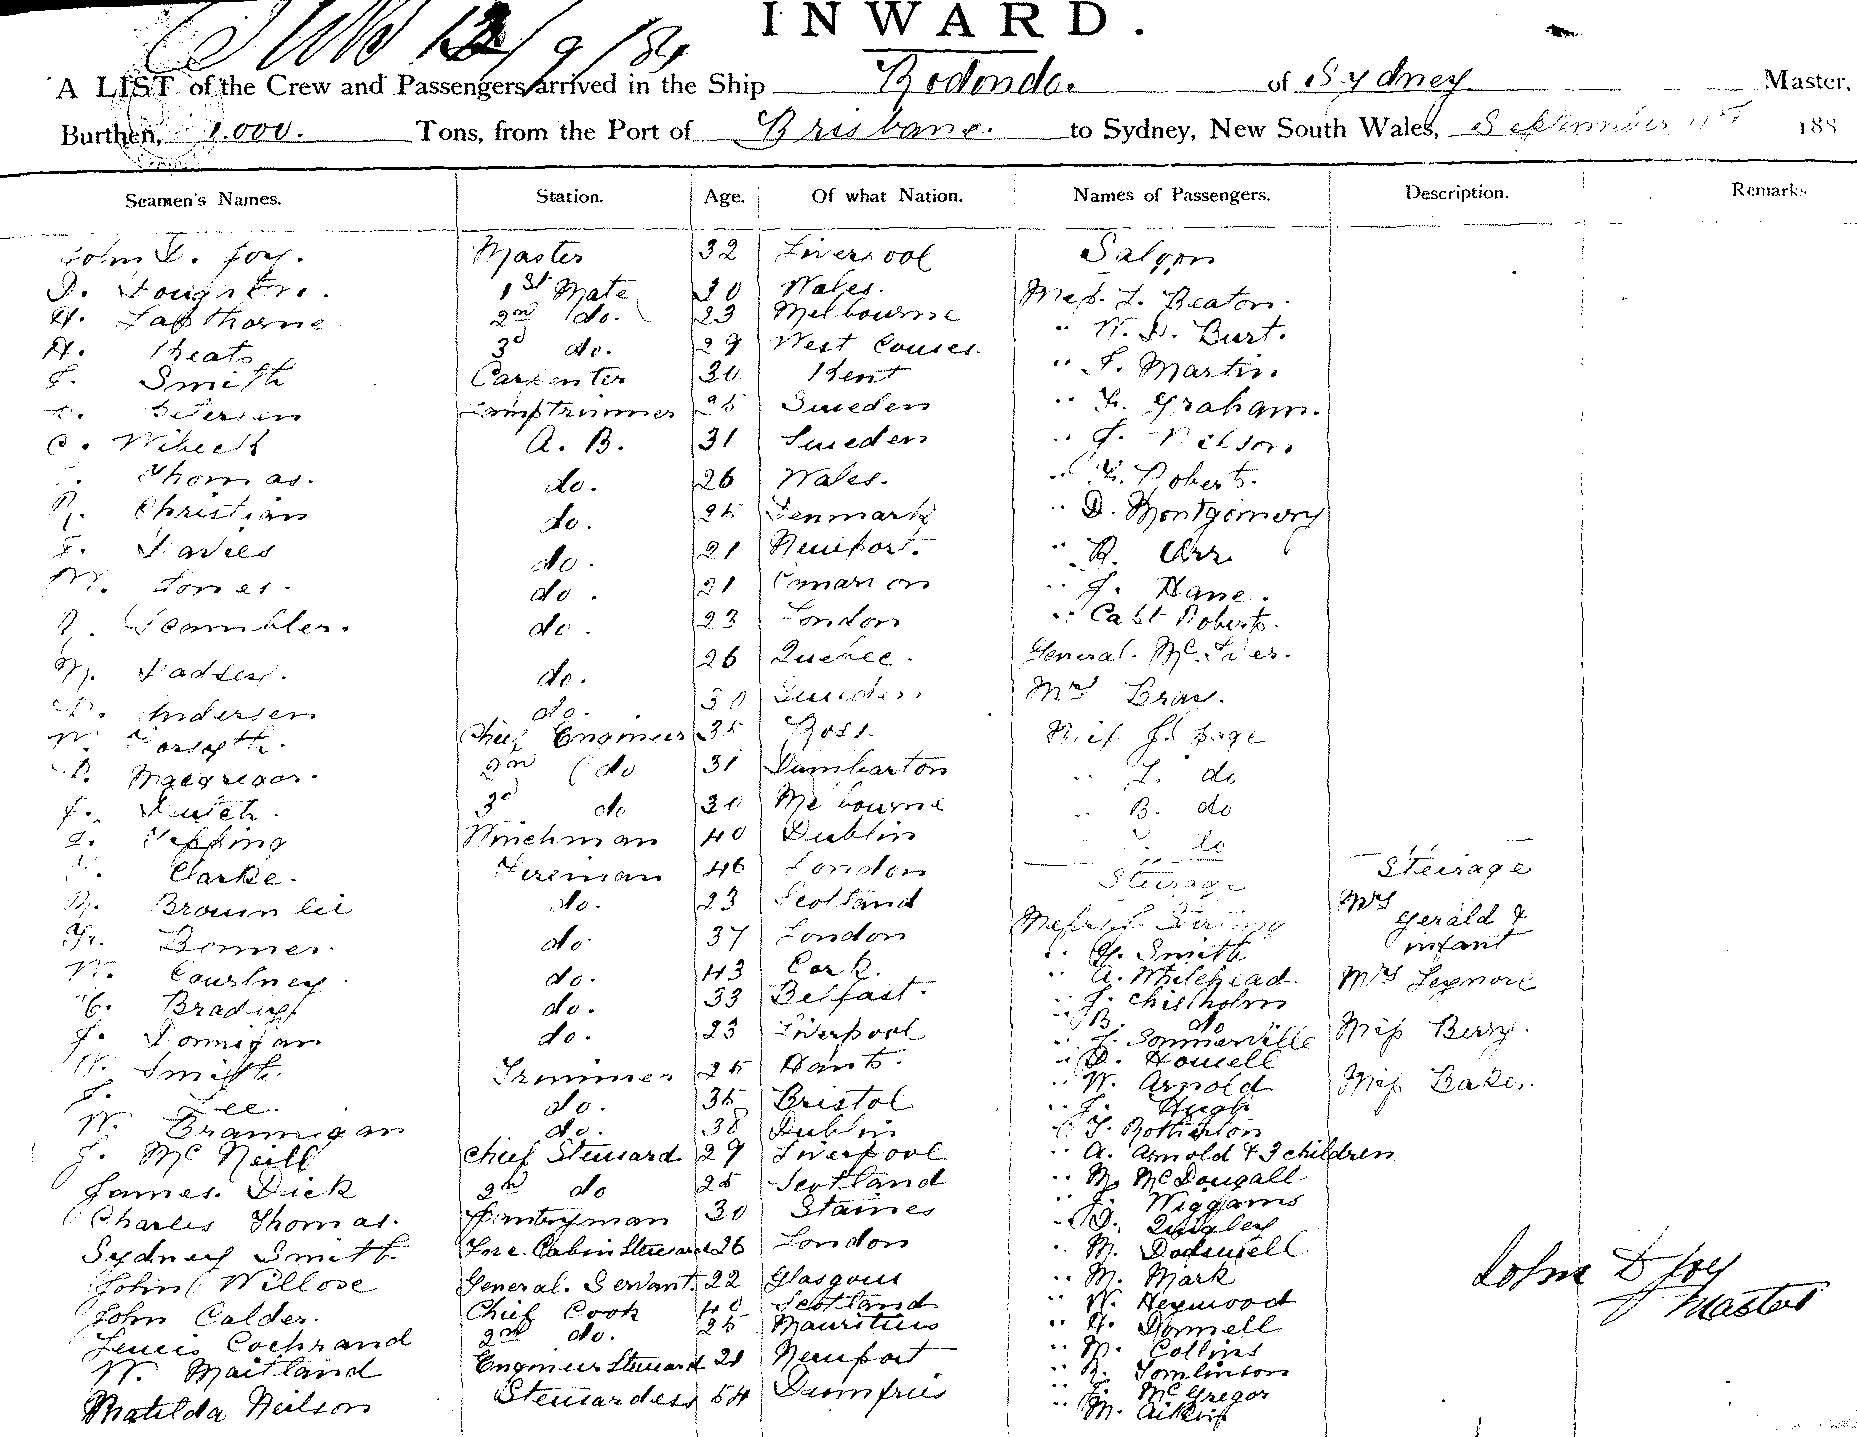 12/9/84
INWARD.
A LIST of the Crew and Passengers arrived in the Ship Rodondo. of Sydney Master,
Burthen, 1.000. Tons, from the Port of Brisbane. to Sydney, New South Wales, September 11st 188
Seamen's Names. Station. Age. Of what Nation. Names of Passengers. Description. Remarks
John D. Joy. Master 32 Liverpool Saloon
D. 1st Mate 30 Wales. Messs. L. Beaton.
H. Lapthorne 2nd do. 23 Melbourne " W. D. Burt.
H. Keats 3d do. 29 West Couses. " T. Martin.
F. Smith Carpenter 30 Kent " Graham.
Petersen Lamptrimmer 25 Sweden " J. Nelson
C. Wibeck A. B. 31 Sweden " Roberts.
Thomas. do. 26 Wales. " D. Montgomery
R. Christian do. 25 Denmark " R. Orr
F. Davies do. 21 Newport. " J. Hane.
W. Jones. do. 21 London " Capt Roberts.
Scambler. do. 23 Quebec. General. Mc.
do. 26 Sweden Mrs Bray.
Andersen do. 30 Ross. Miss J. Page
W. Forsyth. Chief Engineer 35 Dumbarton " L. do
Macgregor. 2nd do 31 Melbourne " B. do
J. 3d do 30 Dublin " do
Topping Winchman 40 London Steerage Steirage
Clarke. Fireman 46 Scotland Messrs Stirling Mrs Gerald &
Brownlie do. 23 London " G. Smith infant
Bonner. do. 37 Cork. " A. Whitehead. Mrs Seymore
W. Courtney do. 43 Belfast. " J. Chisholm
Bradley do. 33 Liverpool " B. do Miss Berry.
J. Donnigan do. 23 Hants. " J. Sommerville
W. Smith. Trimmer 25 Bristol " D. Howell Miss Baker.
J. Lee. do. 35 Dublin " W. Arnold
W. Brannigan do. 38 Liverpool " J. Hugh
J. McNeill Chief Steward 29 Scotland " T. Rotherton
James. Dick 2nd do 25 Staines " A. Arnold & 3 children
Charles Thomas. Pantryman 30 London " M. McDougall
Sydney Smith Fore. Cabin Steward 26 Glasgow " J. Wiggams
John Willose General. Servant. 22 Scotland " D. Quigley
John Calder. Chief Cook 40 Mauritius " M. Dodswell
Lewis Cochrand 2nd do. 25 Newport " M. Mark
W. Maitland Engineer Steward 21 Dumfries " W. Heywood
Matilda Neilson Stewardess 54
" H. Donnell
" M. Collins
" R. Tomlinson
" J. McGregor
" M. Aitken
John D Joy
Master